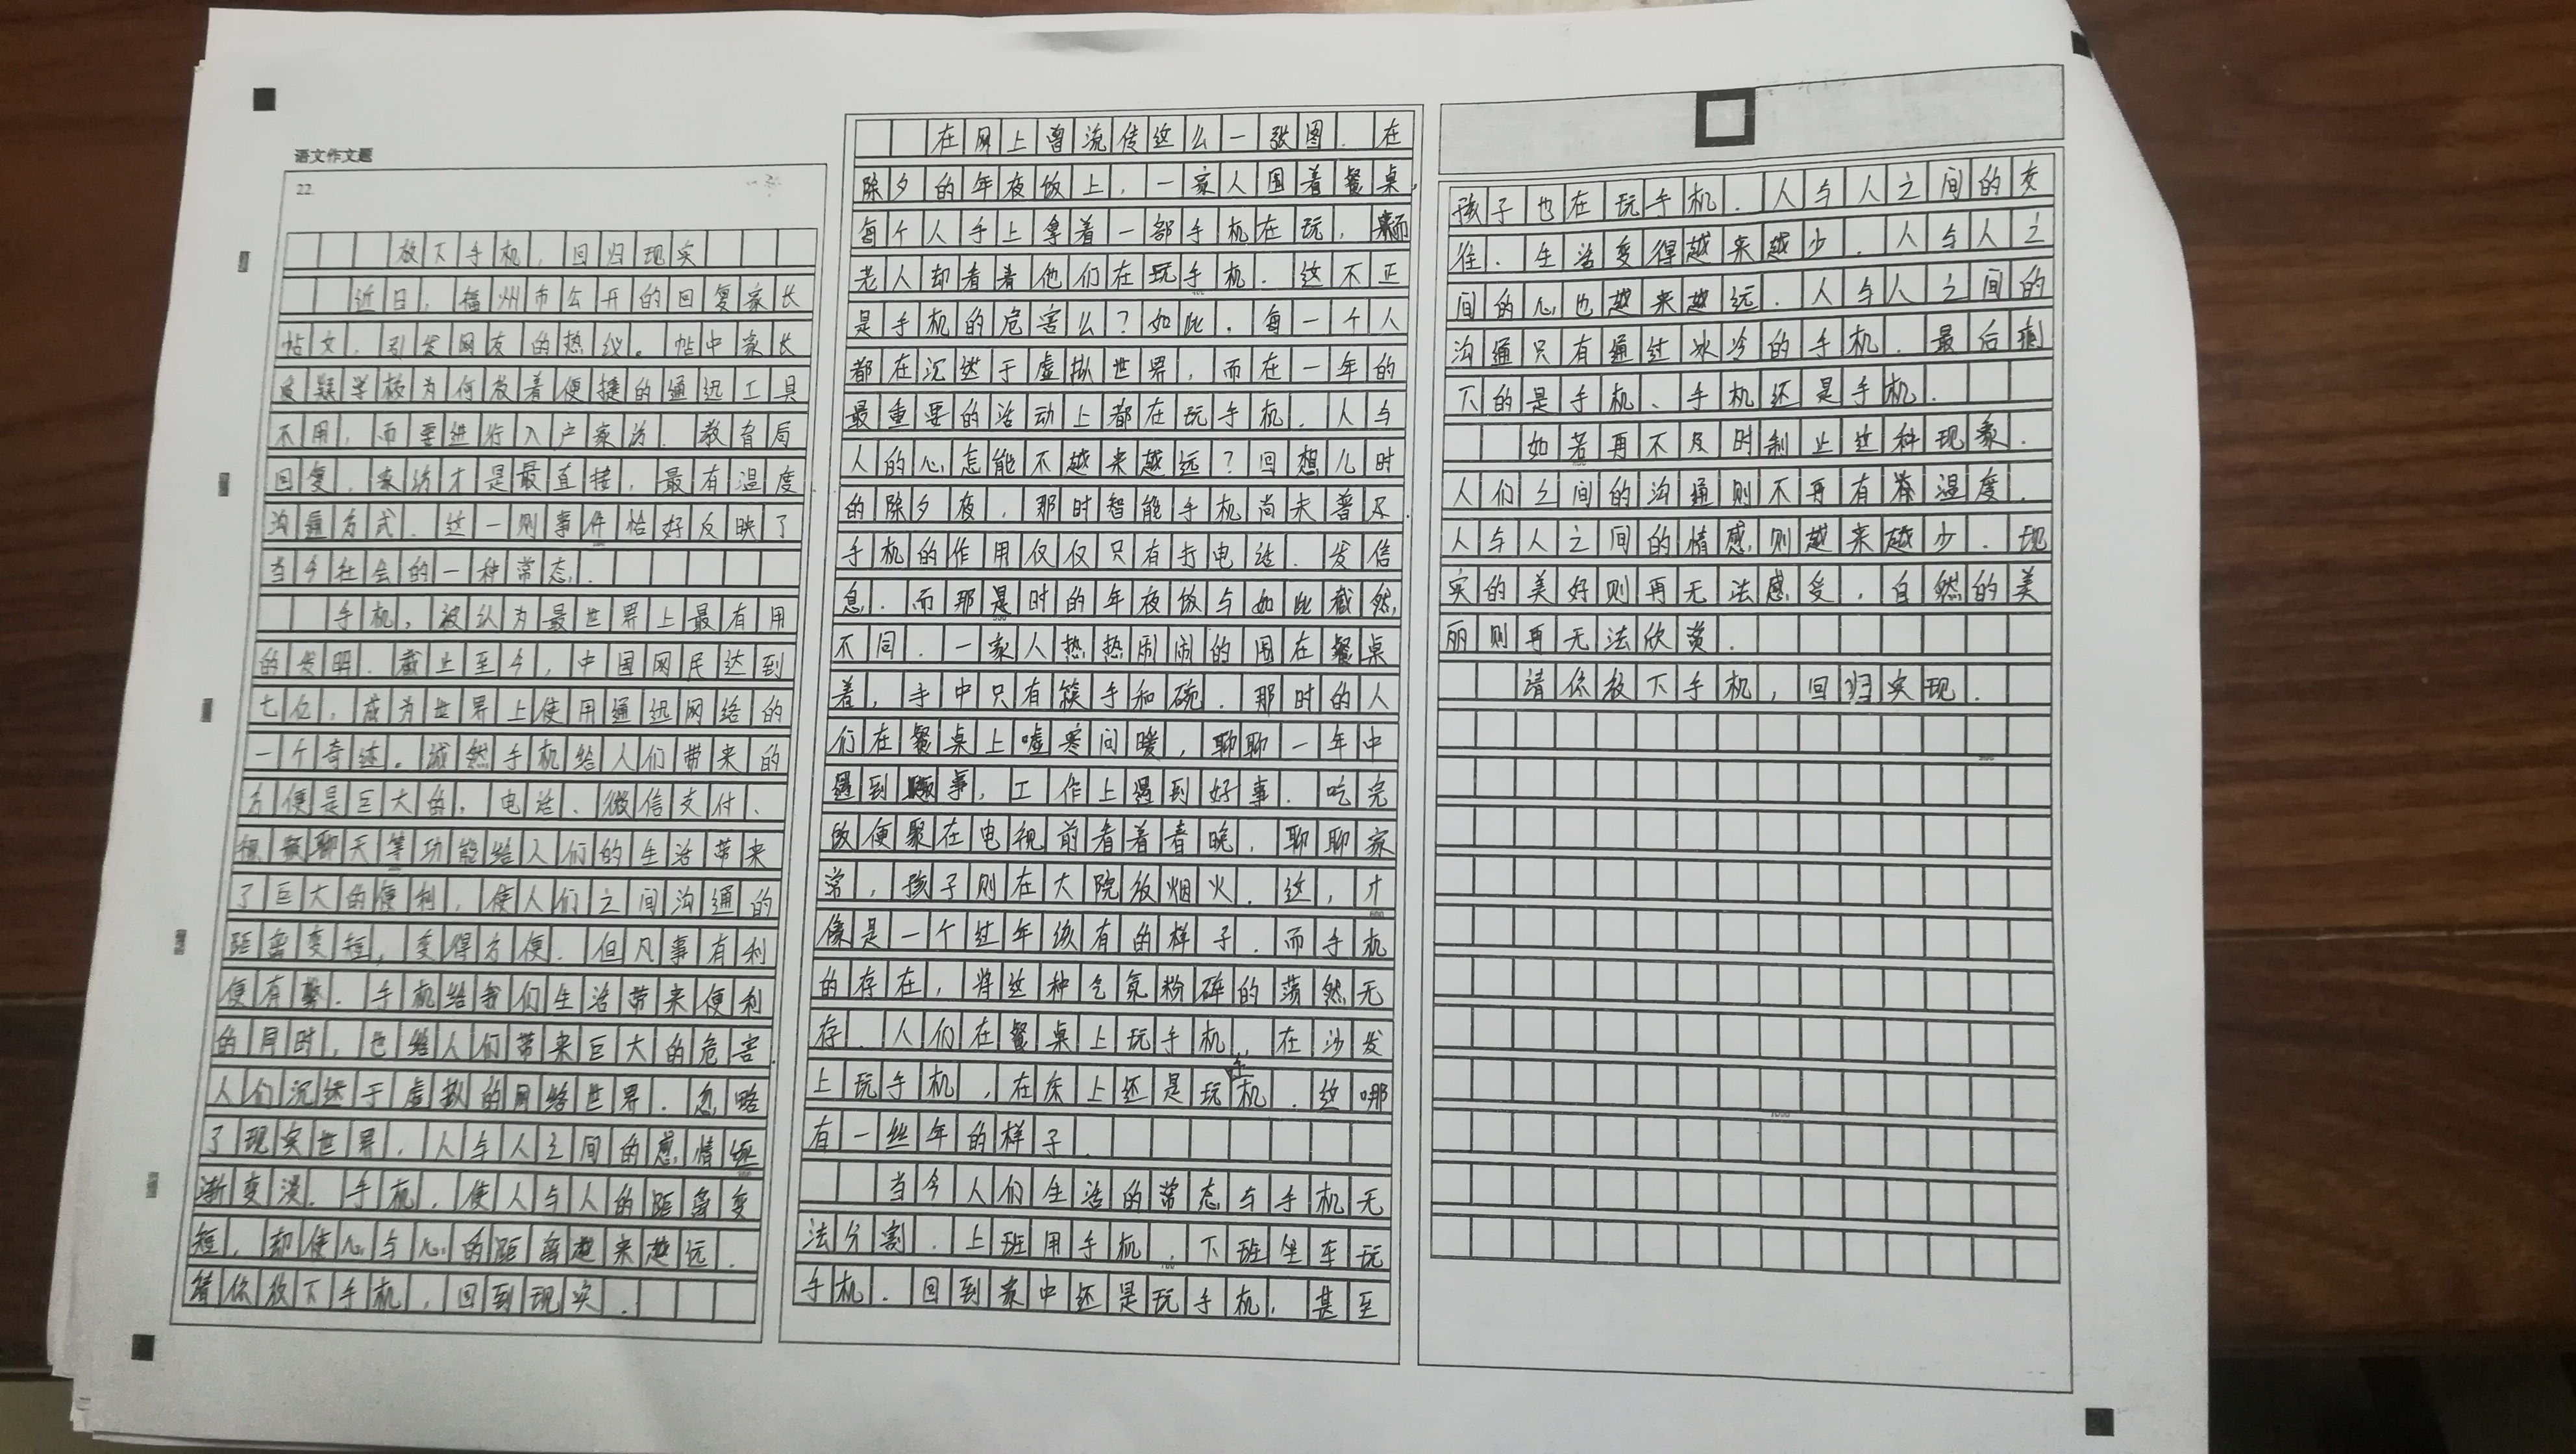 语文作文题
22.
放下手机,回归现实
近日,福州市公开的回复家长
帖文,引发网友的热议。帖中家长
质疑学校为何放着便捷的通迅工具
不用,而要进行入户家访.教育局
回复,家访才是最直接,最有温度
沟通方式.这一则事件恰好反映了
当今社会的一种常态.
手机,被认为最世界上最有用
的发明.截止至今,中国网民达到
七亿,成为世界上使用通迅网络的
一个奇迹。诚然手机给人们带来的
方便是巨大的,电话、微信支付、
视频聊天等功能给人们的生活带来
了巨大的便利,使人们之间沟通的
距离变短,变得方便.但凡事有利
便有弊.手机给我们生活带来便利
的同时,也给人们带来巨大的危害.
人们沉迷于虚拟的网络世界.忽略
了现实世界,人与人之间的感情逐
渐变淡.手机,使人与人的距离变
短,却使心与心的距离越来越远.
请你放下手机,回到现实.
在网上曾流传这么一张图.在
除夕的年夜饭上,一家人围着餐桌,
每个人手上拿着一部手机在玩,而
老人却看着他们在玩手机.这不正
是手机的危害么?如此,每一个人
都在沉迷于虚拟世界,而在一年的
最重要的活动上都在玩手机.人与
人的心怎能不越来越远?回想儿时
的除夕夜,那时智能手机尚未普及.
手机的作用仅仅只有打电话.发信
息.而那是时的年夜饭与如此截然
不同.一家人热热闹闹的围在餐桌
着,手中只有筷子和碗.那时的人
们在餐桌上嘘寒问暖,聊聊一年中
遇到趣事,工作上遇到好事.吃完
饭便聚在电视前看着春晚,聊聊家
常,孩子则在大院放烟火.这,才
像是一个过年该有的样子.而手机
的存在,将这种气氛粉碎的荡然无
存.人们在餐桌上玩手机,在沙发
上玩手机,在床上还是玩手机.这哪
有一丝年的样子.
当今人们生活的常态与手机无
法分割.上班用手机,下班坐车玩
手机.回到家中还是玩手机,甚至
孩子也在玩手机.人与人之间的交
往.生活变得越来越少.人与人之
间的心也越来越远.人与人之间的
沟通只有通过冰冷的手机.最后剩
下的是手机、手机还是手机.
如若再不及时制止这种现象.
人们之间的沟通则不再有温度.
人与人之间的情感则越来越少.现
实的美好则再无法感受,自然的美
丽则再无法欣赏.
请你放下手机,回归实现.